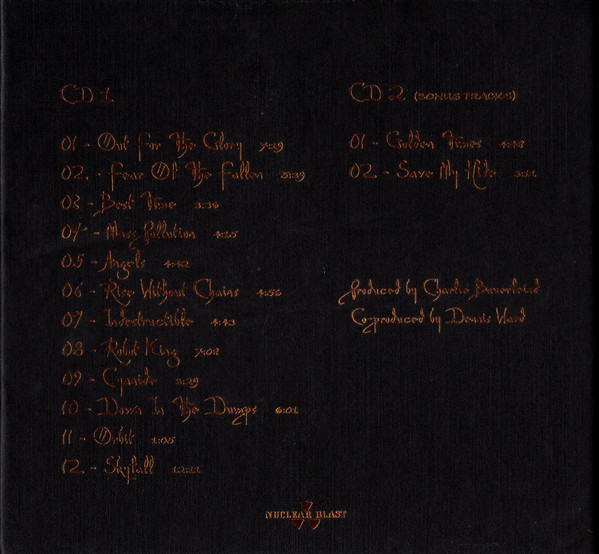 CD 1
01 - Out For The Glory 7:19
02. - Fear Of The Fallen 5:39
03 - Best Time 3:36
04 - Mass Pollution 4:15
05 - Angels 4:42
06 - Rise Without Chains 4:56
07 - Indestructible 4:43
08 - Robot King 7:08
09 - Cyanide 3:29
10 - Down In The Dumps 6:01
11 - Orbit 1:05
12. - Skyfall 12:11
CD 2 (BONUS TRACKS)
01 - Golden Times
02. - Save My Hide
Produced by Charlie Bauerfeind
Co-produced by Dennis Ward
NUCLEAR BLAST